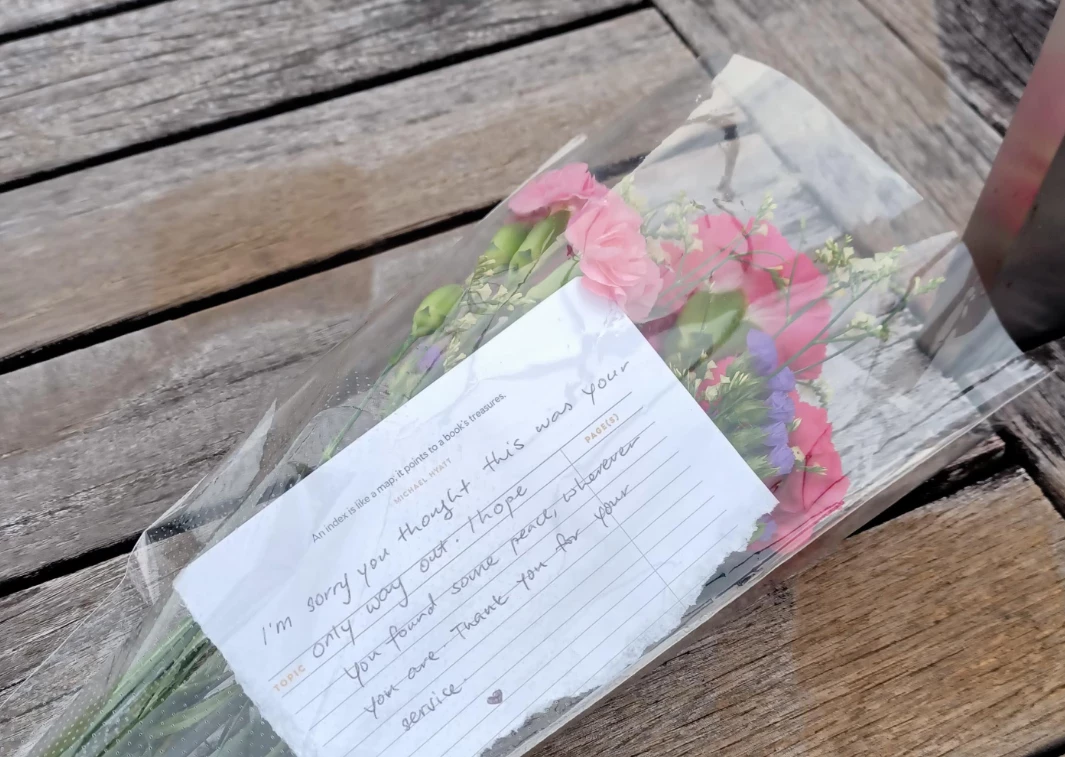 An index is like a map; it points to a book's treasures.
MICHAEL HYATT
I'm sorry you thought this was your
TOPIC
PAGE(S)
only way out. I hope
you found some peace, wherever
you are. Thank you for your
service.